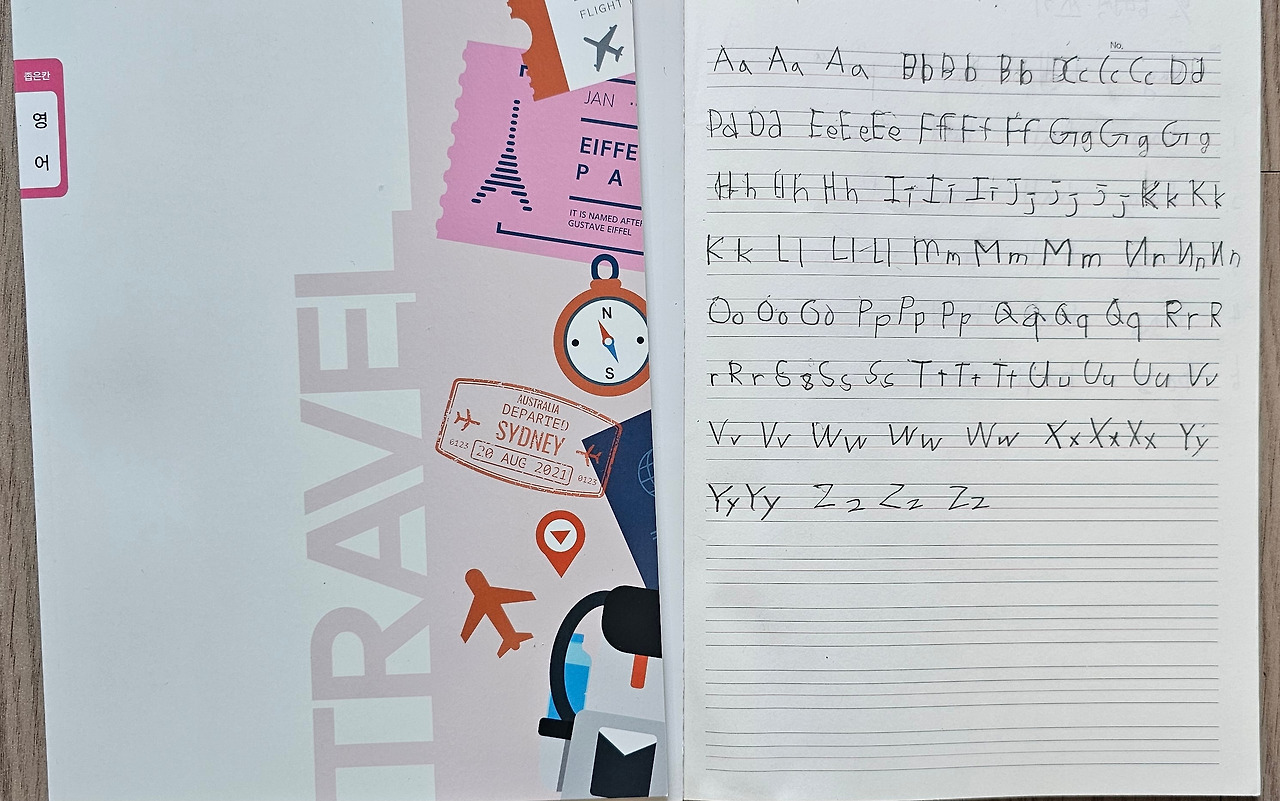 좁은칸
영
어
TRAVEL
FLIGHT
JAN
EIFFE
PA
IT IS NAMED AFTER
GUSTAVE EIFFEL
N
S
AUSTRALIA
DEPARTED
SYDNEY
0123 20 AUG 2021 0123
No.
Aa Aa Aa Bb Bb Bb Cc Cc Cc Dd
Dd Dd Ee Ee Ee Ff Ff Ff Gg Gg Gg
Hh Hh Hh Ii Ii Ii Jj Jj Jj Kk Kk
Kk Ll Ll Ll Mm Mm Mm Nn Nn Nn
Oo Oo Oo Pp Pp Pp Qq Qq Qq Rr R
r Rr Ss Ss Ss Tt Tt Tt Uu Uu Uu Vv
Vv Vv Ww Ww Ww Xx Xx Xx Yy
Yy Yy Zz Zz Zz